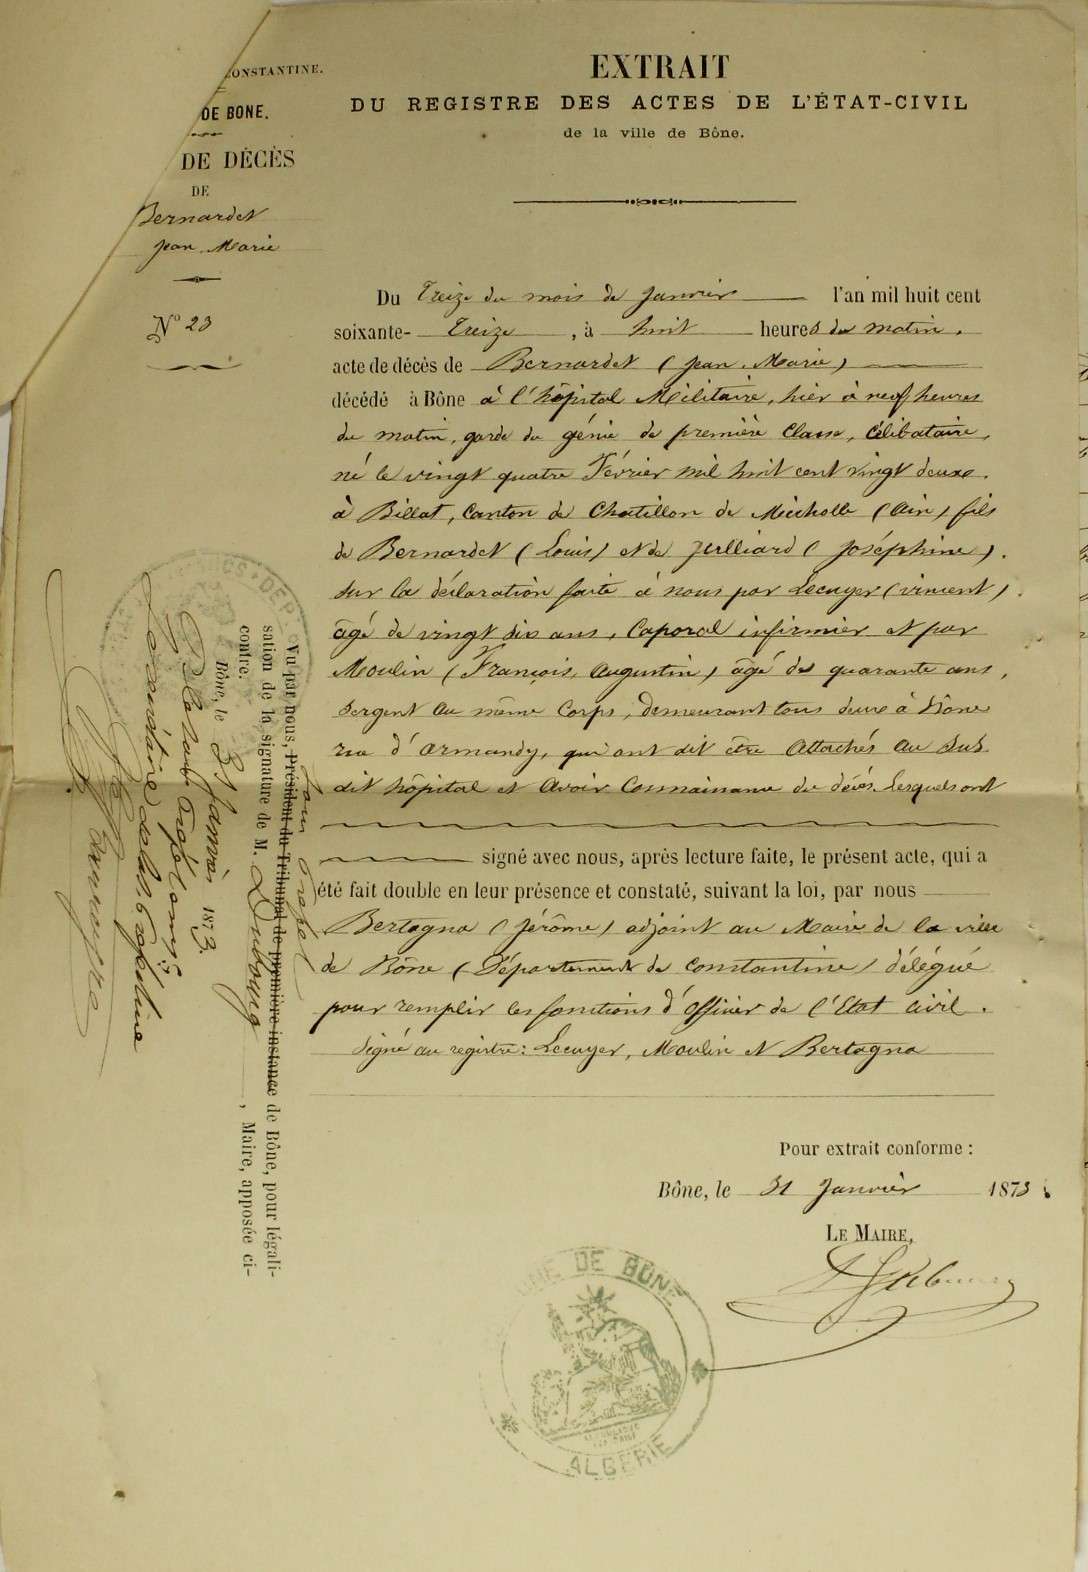 CONSTANTINE.
DE BONE.
DE DÉCÈS
DE
Bernardet
Jean Marie
N° 23
EXTRAIT
DU REGISTRE DES ACTES DE L'ÉTAT-CIVIL
de la ville de Bône.
Du Treize du mois de Janvier l'an mil huit cent
soixante- Treize, à huit heures du matin.
acte de décès de Bernardet (Jean Marie)
décédé à Bône à l'hôpital Militaire, hier à neuf heures
du matin, garde du génie de première Classe, Célibataire,
né le vingt quatre Février mil huit cent vingt deux.
à Billat, Canton de Chatillon de Michelle (Ain) fils
de Bernardet (Louis) et de Julliard (Joséphine).
sur la déclaration faite à nous par Lecuyer (vincent)
âgé de vingt six ans, Caporal infirmier et par
Moulin (François, Augustin) âgé de quarante ans,
Sergent au même Corps, demeurant tous deux à Bône
rue d'Armandy, qui ont dit être Attachés au Sus
dit hôpital et Avoir Connaissance du décès. Lesquels ont
signé avec nous, après lecture faite, le présent acte, qui a
été fait double en leur présence et constaté, suivant la loi, par nous
Bertagna (Jérôme) adjoint au Maire de la ville
de Bône (Département de Constantine) délégué
pour remplir les fonctions d'officier de l'Etat Civil.
Signé au registre: Lecuyer, Moulin et Bertagna
Pour extrait conforme :
Bône, le 31 Janvier 1873.
LE MAIRE,
Dubourg
COMMUNE DE BÔNE
ALGÉRIE
Vu par nous, Président du Tribunal de première instance de Bône, pour légali-
sation de la signature de M. Dubourg, Maire, apposée ci-
contre.
Bône, le 31 Janvier 1873.
Le Sous Préfet
Le secrétaire de la S. Préfecture